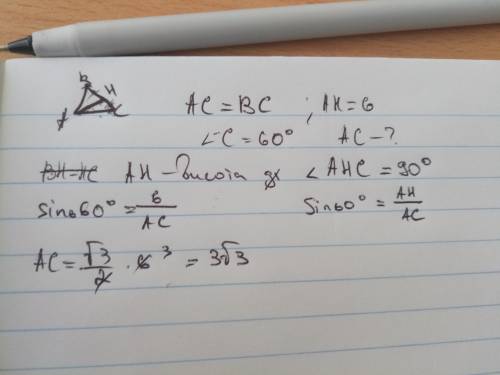 B
H
A C
AC = BC ; AH = 6
∠C = 60° AC - ?
BH = HC AH - висота ∠AHC = 90°
sin 60° = 6/AC
sin 60° = AH/AC
AC = √3/2 · 6 3 = 3√3